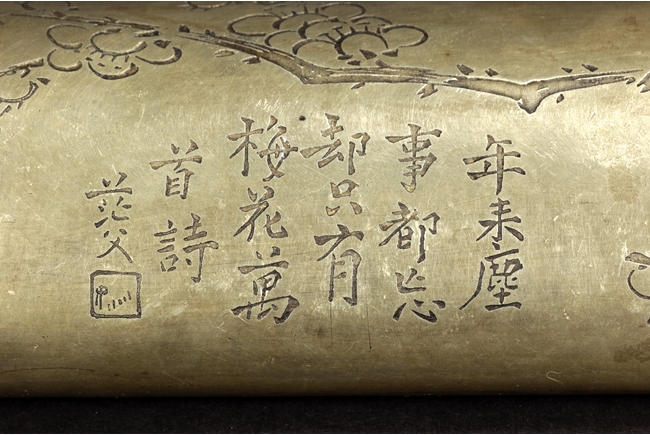 年来塵
事都忘
却只有
梅花萬
首詩
茫父